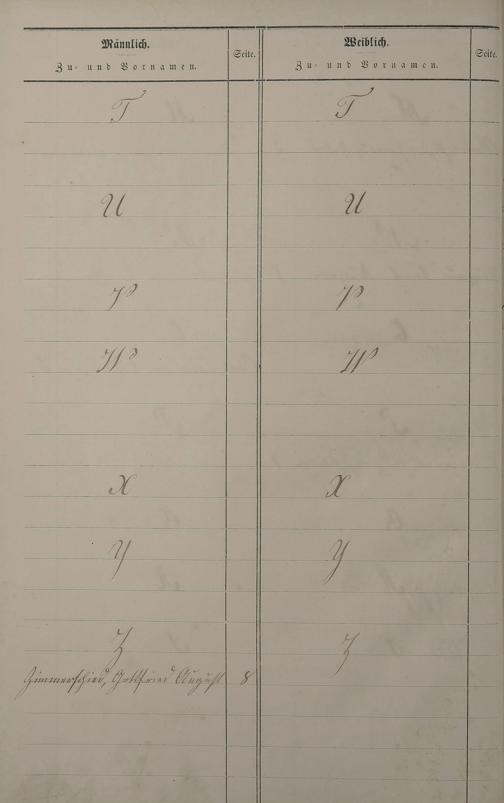 Männlich.
Zu- und Vornamen.
Seite.
Weiblich.
Zu- und Vornamen.
Seite.
T
T
U
U
V
V
W
W
X
X
Y
Y
Z
Z
Zimmerschied, Gottfried August 8